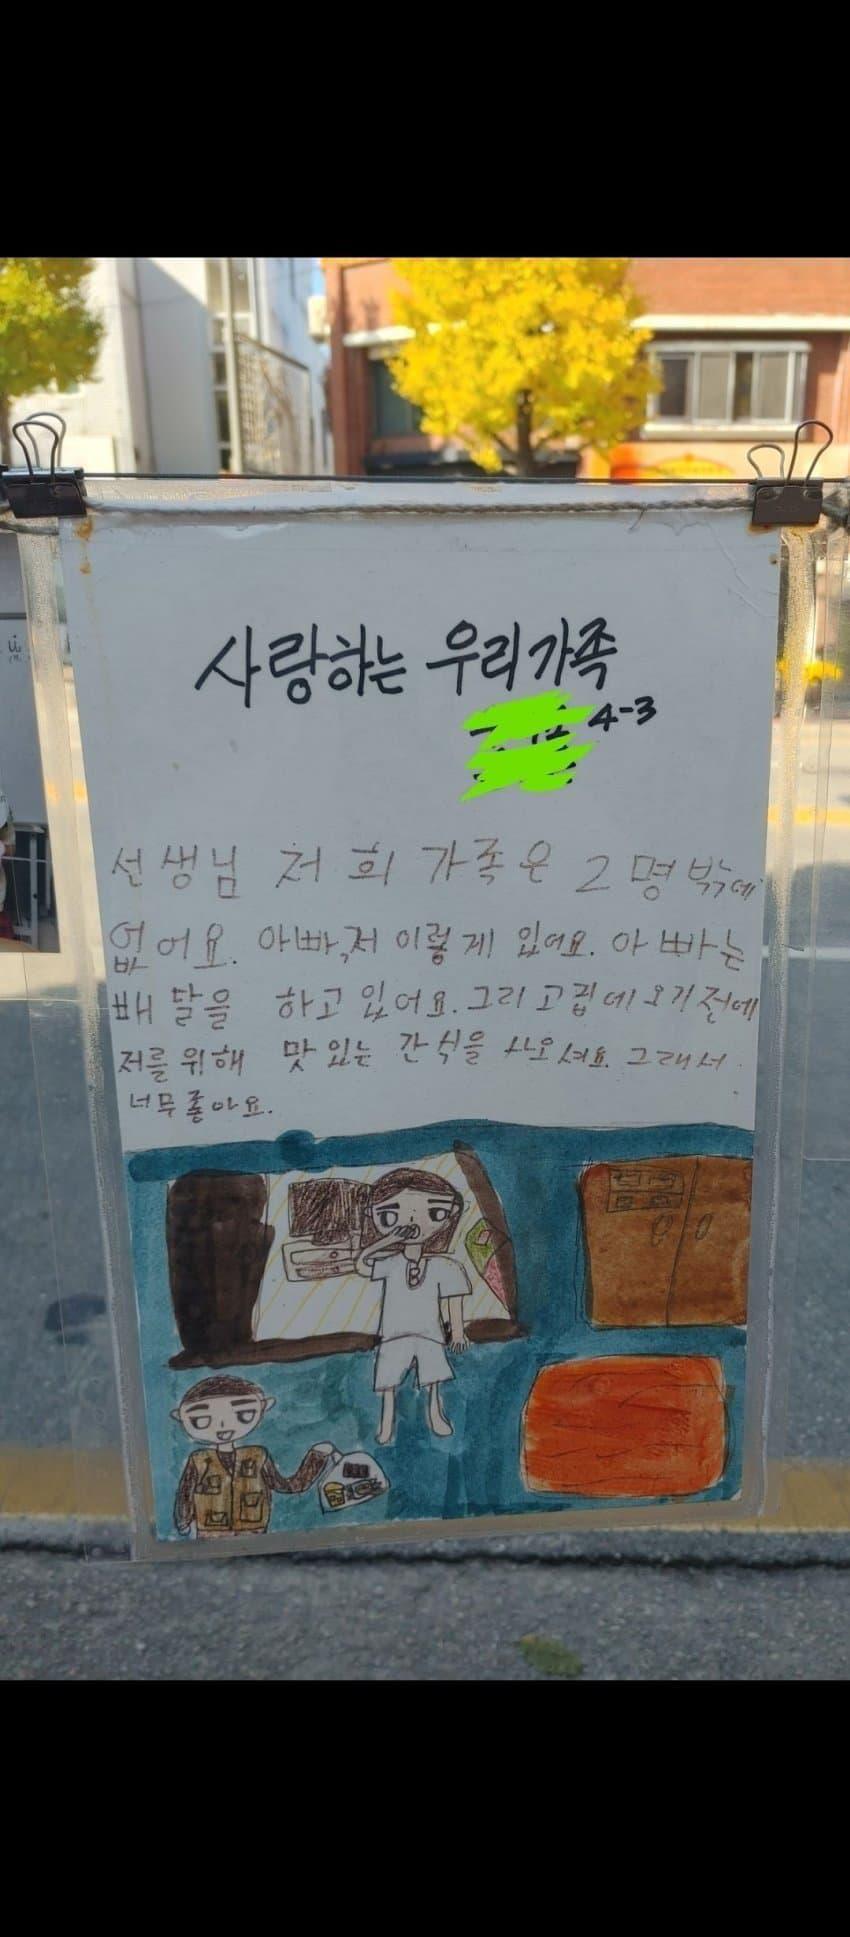 사랑하는 우리가족
4-3
선생님 저희 가족은 2명밖에
없어요. 아빠,저 이렇게 있어요. 아빠는
배달을 하고있어요.그리고집에오기전에
저를위해 맛있는 간식을 사오셔요. 그래서
너무좋아요.